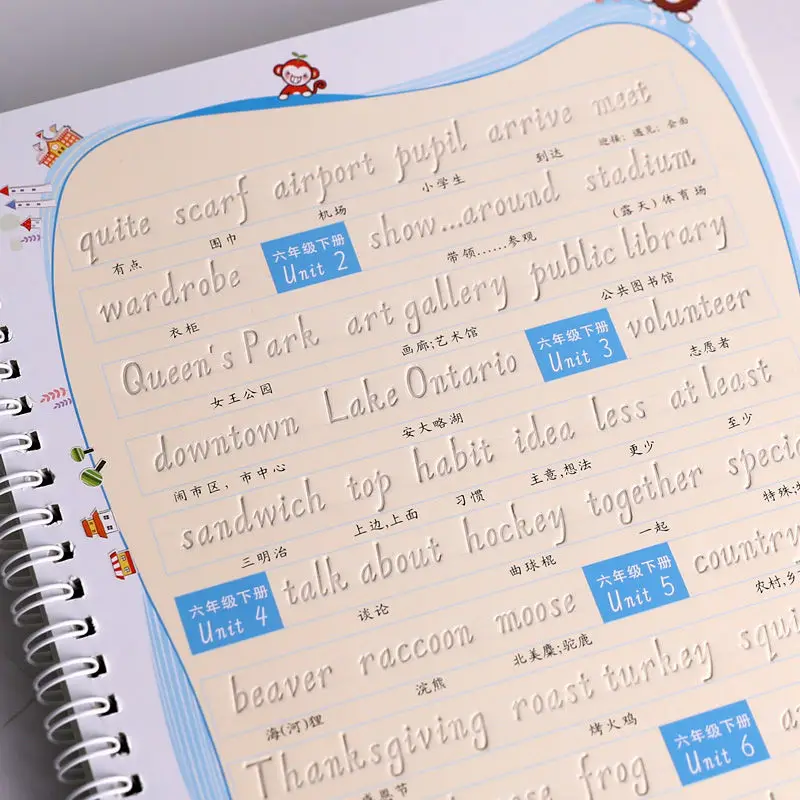 quite scarf airport pupil arrive meet
有点 围巾 机场 小学生 到达 迎接；遇见；会面
wardrobe 六年级下册 Unit 2 show...around stadium
衣柜 带领......参观 (露天)体育场
Queen's Park art gallery public library
女王公园 画廊;艺术馆 公共图书馆
downtown Lake Ontario 六年级下册 Unit 3 volunteer
闹市区，市中心 安大略湖 志愿者
sandwich top habit idea less at least
三明治 上边,上面 习惯 主意,想法 更少 至少
六年级下册 Unit 4 talk about hockey together
谈论 曲球棍 一起 特殊;
beaver raccoon moose 六年级下册 Unit 5
海(河)狸 浣熊 北美麋;驼鹿 农村,
Thanksgiving roast turkey
感恩节 烤火鸡
frog 六年级下册 Unit 6